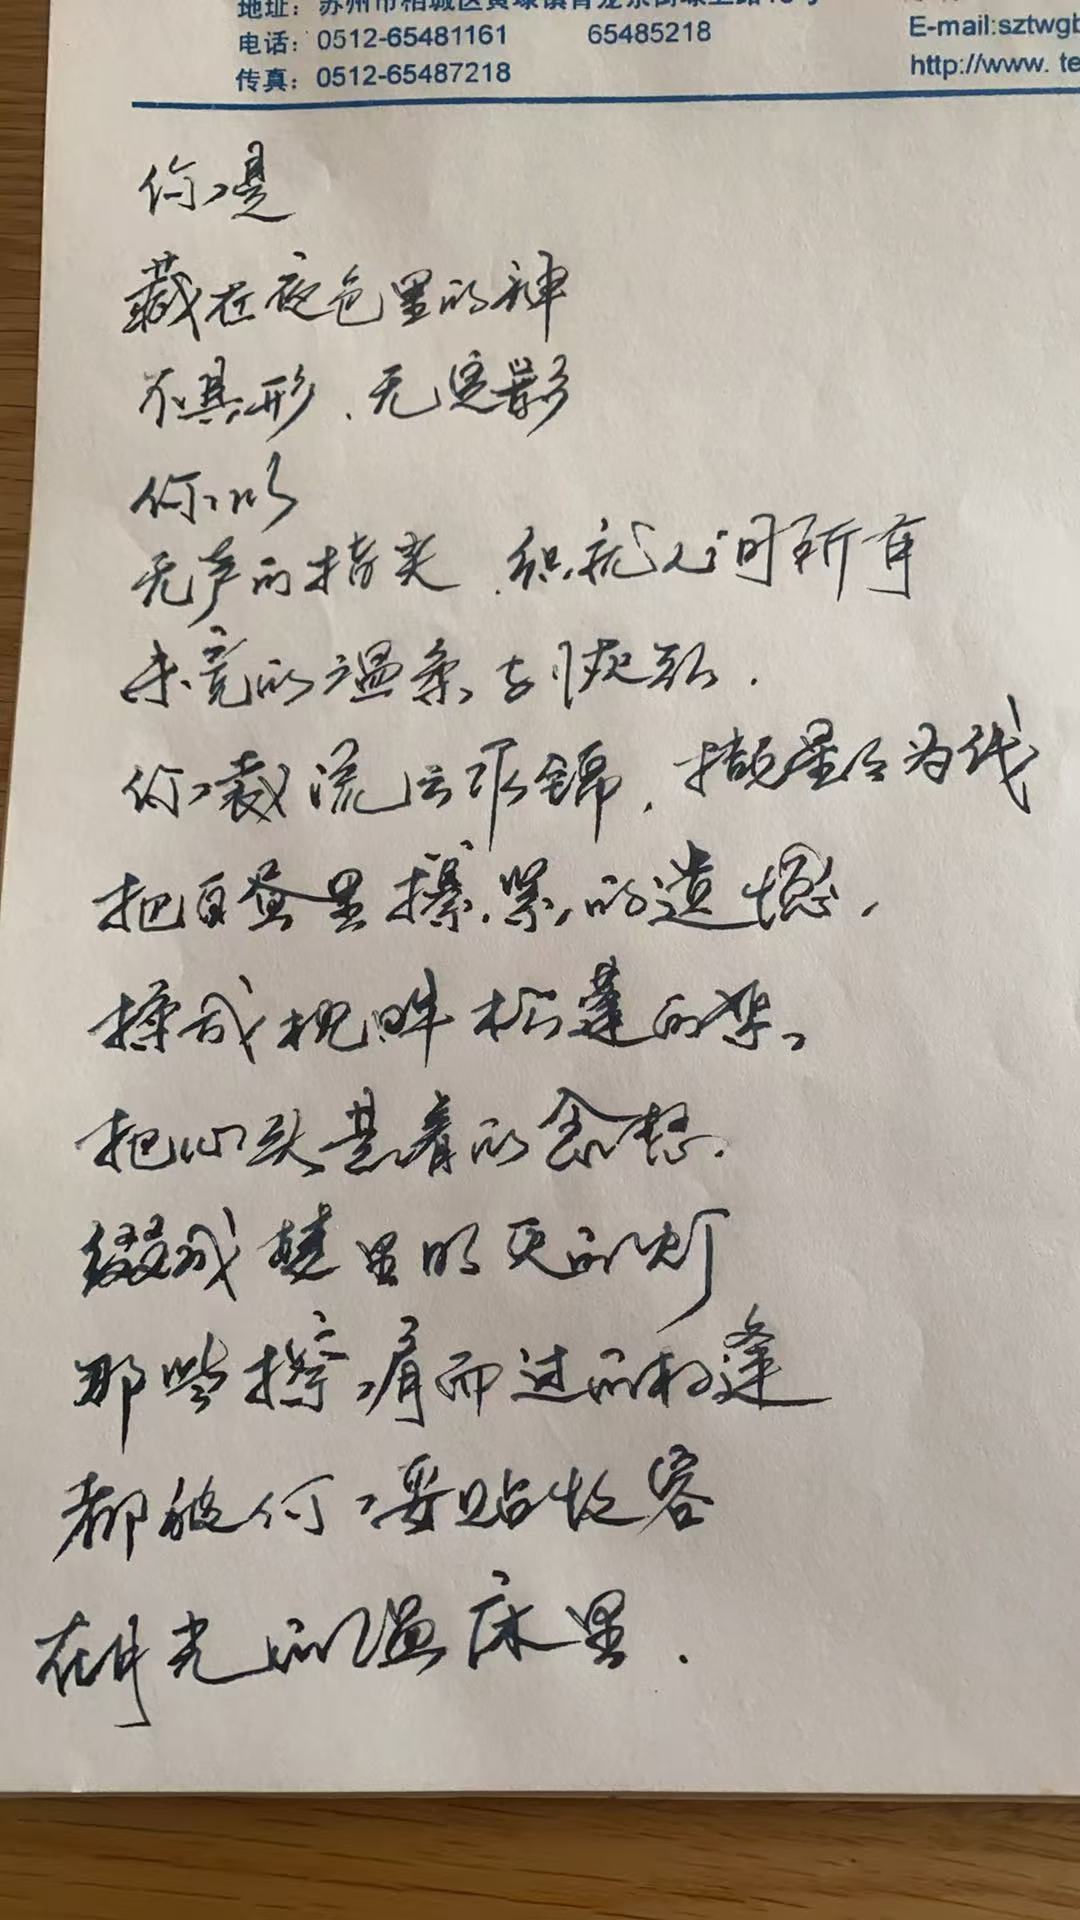 地址：苏州市相城区黄埭镇
电话：0512-65481161 65485218
传真：0512-65487218
E-mail:sztwgb
http://www. te
你是
藏在夜色里的神
不具形、无定影
你以
无声的指尖，织就人间所有
未竟的温柔与
你裁流云作锦，撷星
把白昼里攥紧的遗憾，
揉成枕畔松蓬的絮。
把心头悬着的念想，
缀成梦里明灭的灯
那些擦肩而过的相逢
都被你妥贴收容
在月光的温床里．